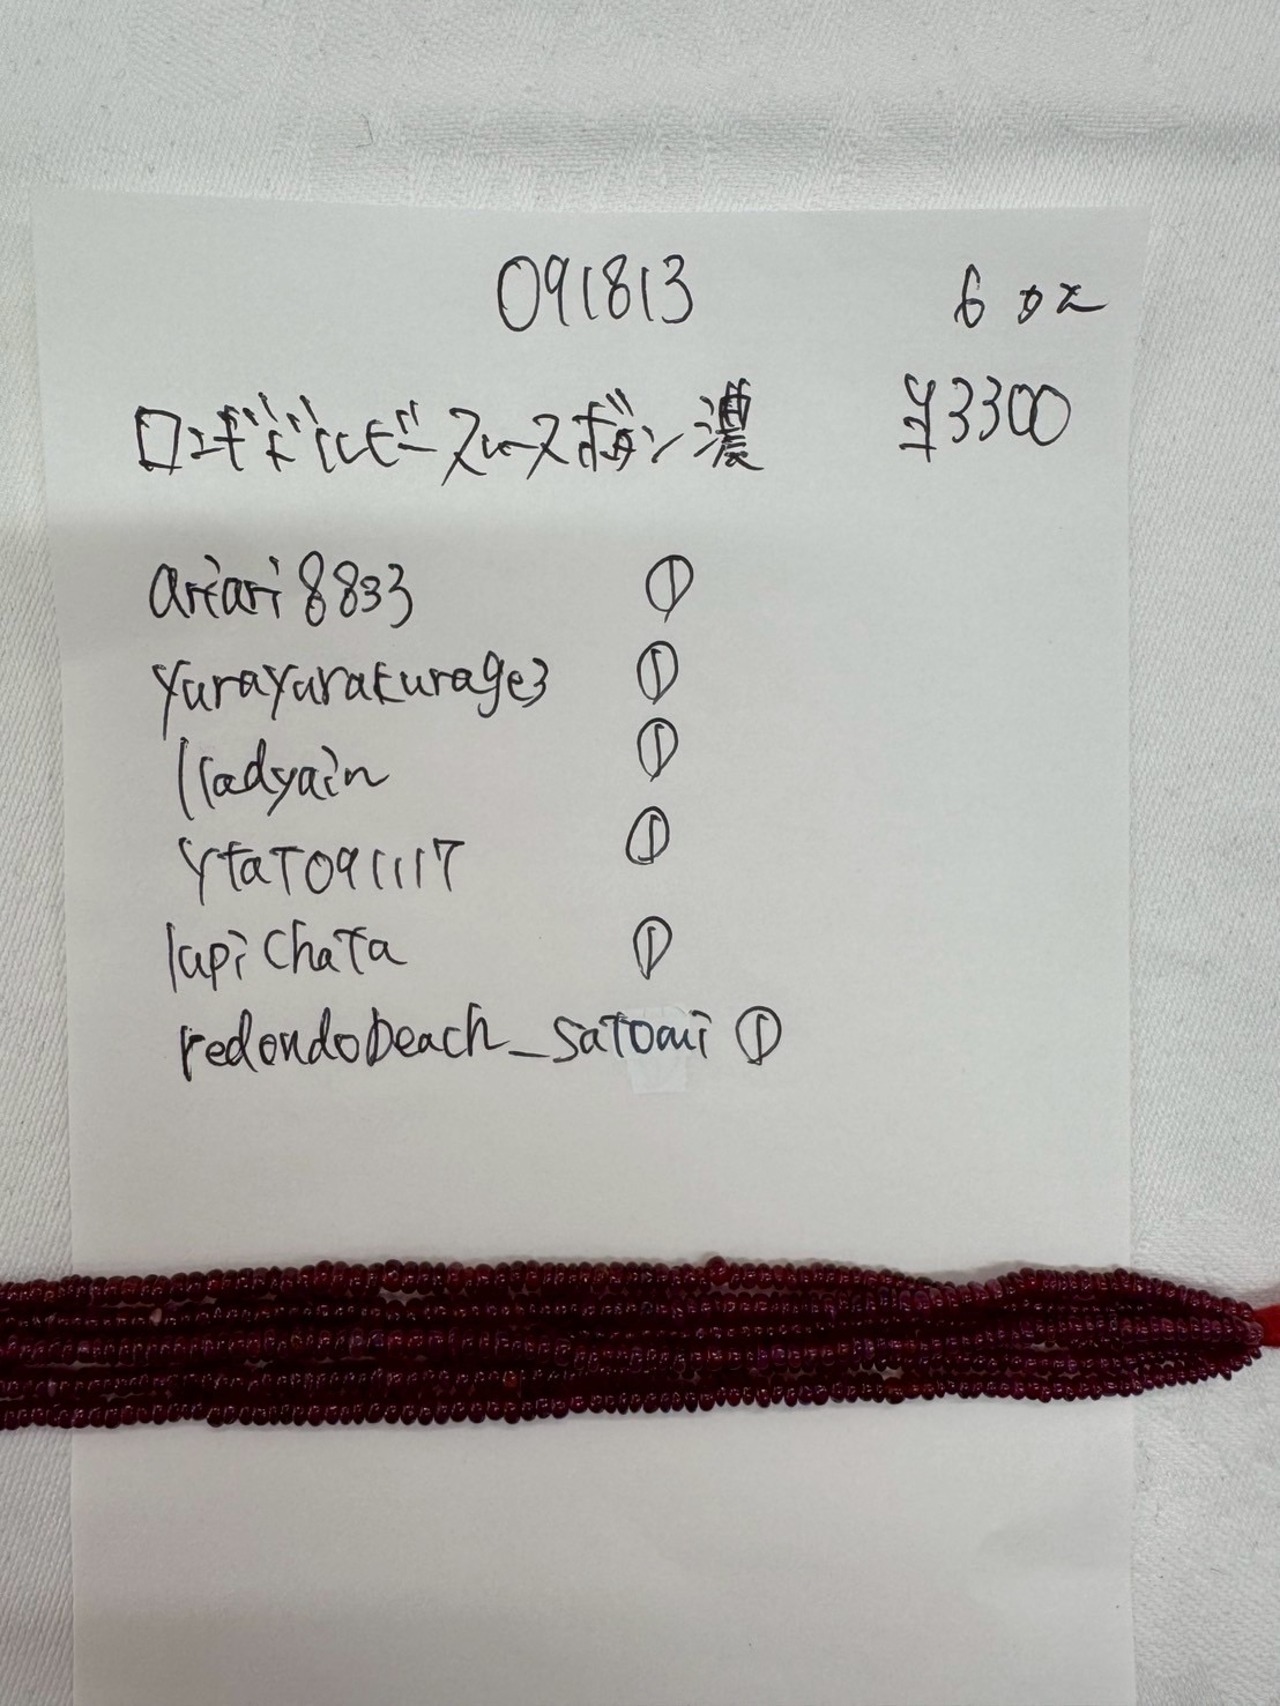 091813
¥3300
濃
ariari8833 ①
yurayurakurage3 ①
lladyain ①
ytat091117 ①
lupichata ①
redondobeach_satomi ①